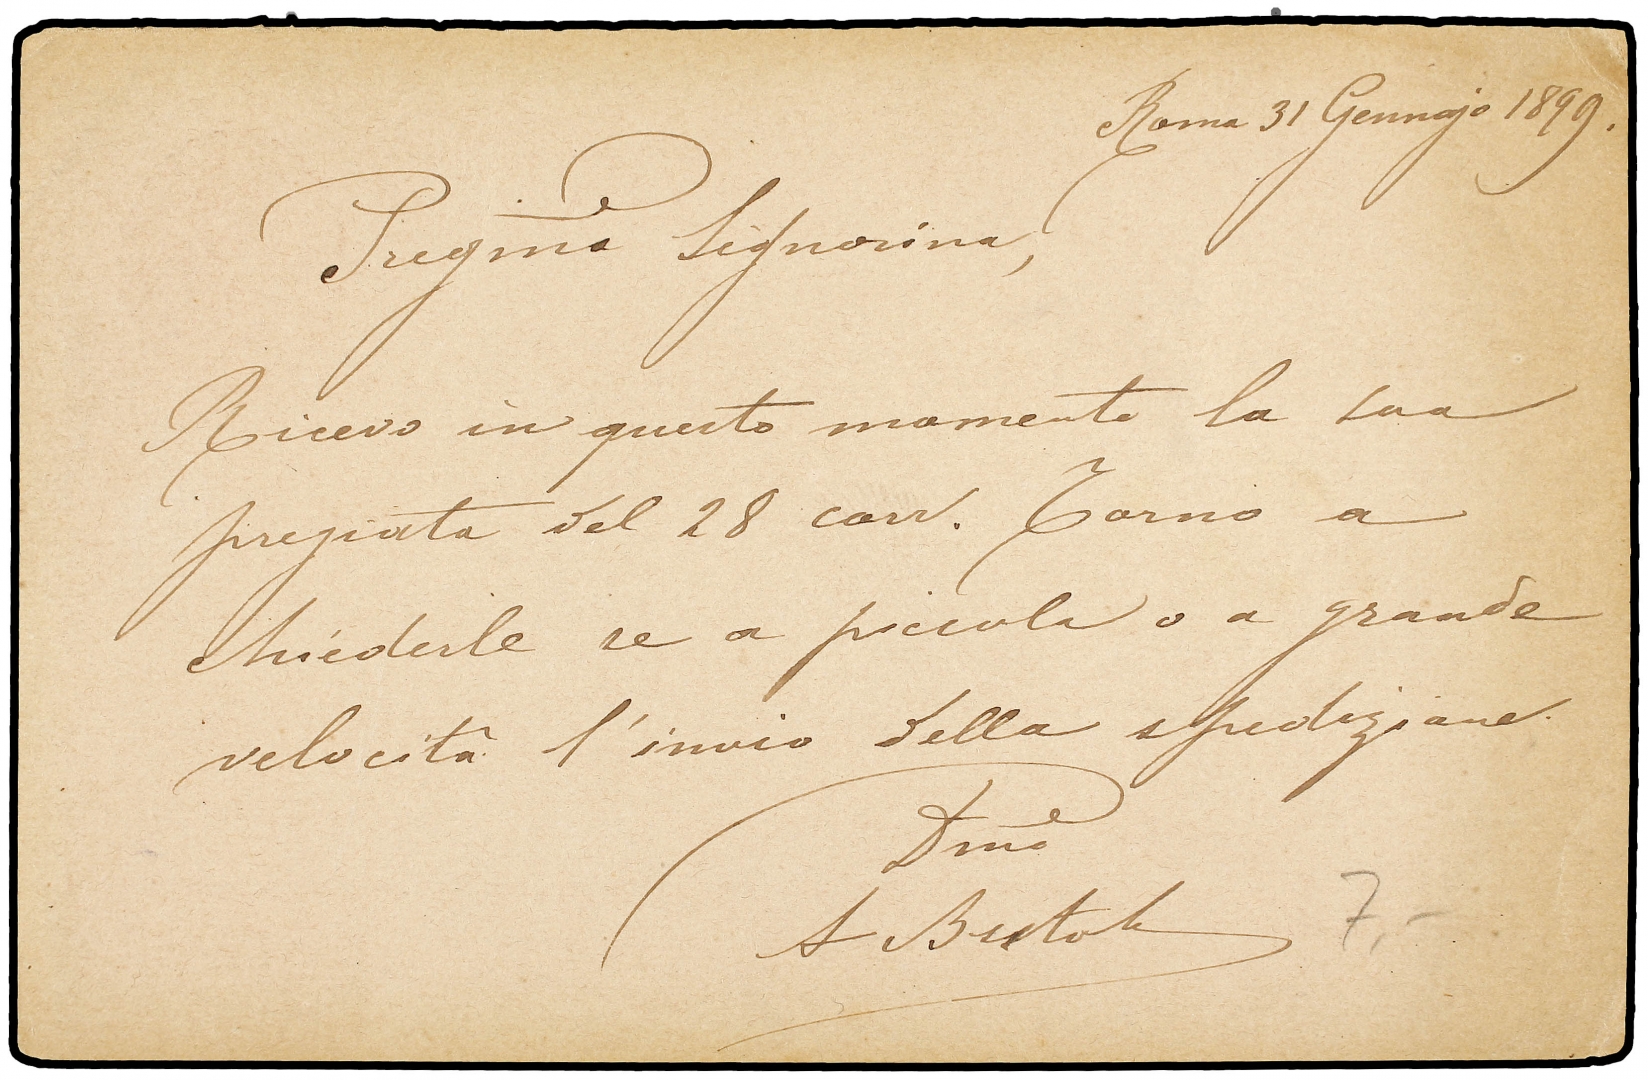 Roma 31 Gennajo 1899.
Pregma Signorina,
Ricevo in questo momento la sua
pregiata del 28 corr. Torno a
chiederle se a piccola o a grande
velocità l'invio della spedizione.
Dmo
A
7,-